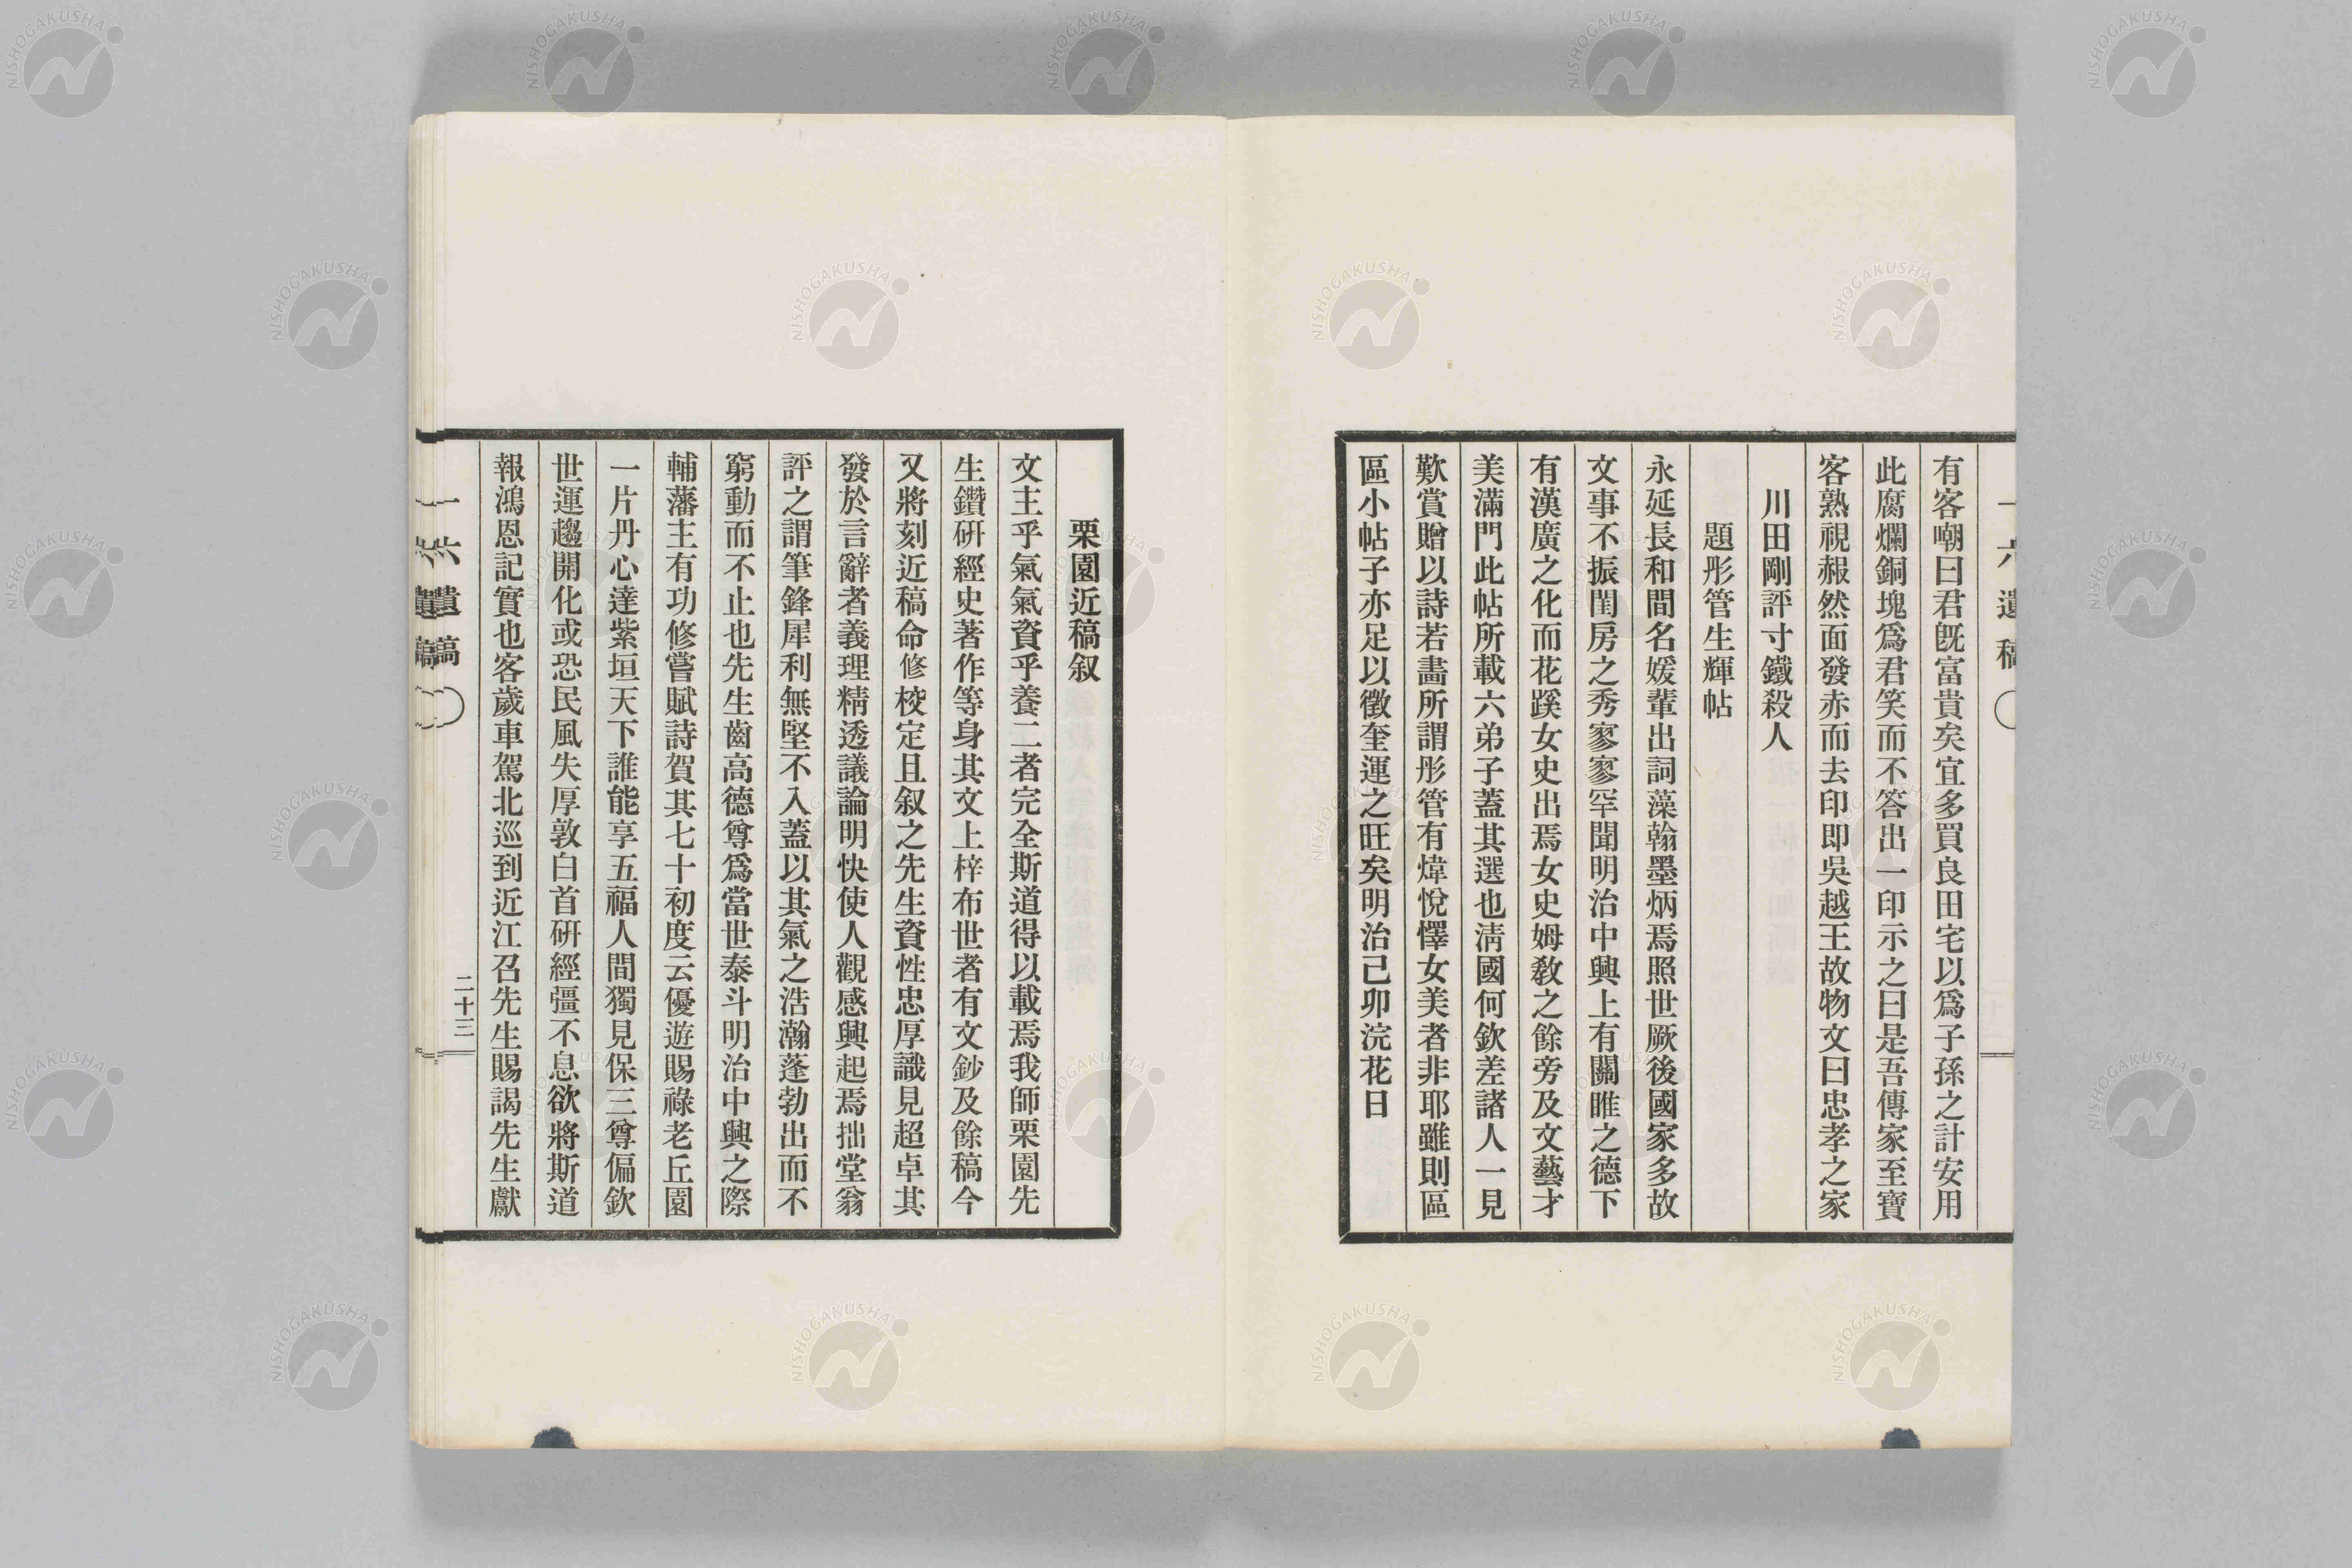 一六遺稿
有客嘲曰君既富貴矣宜多買良田宅以爲子孫之計安用
此腐爛銅塊爲君笑而不答出一印示之曰是吾傳家至寶
客熟視赧然面發赤而去印即吳越王故物文曰忠孝之家
川田剛評寸鐵殺人
題彤管生輝帖
永延長和間名媛輩出詞藻翰墨炳焉照世厥後國家多故
文事不振閨房之秀寥寥罕聞明治中興上有關雎之德下
有漢廣之化而花蹊女史出焉女史姆教之餘旁及文藝才
美滿門此帖所載六弟子蓋其選也淸國何欽差諸人一見
歎賞贈以詩若畫所謂彤管有煒悅懌女美者非耶雖則區
區小帖子亦足以徵奎運之旺矣明治己卯浣花日
栗園近稿叙
文主乎氣氣資乎養二者完全斯道得以載焉我師栗園先
生鑽硏經史著作等身其文上梓布世者有文鈔及餘稿今
又將刻近稿命修校定且叙之先生資性忠厚識見超卓其
發於言辭者義理精透議論明快使人觀感興起焉拙堂翁
評之謂筆鋒犀利無堅不入蓋以其氣之浩瀚蓬勃出而不
窮動而不止也先生齒高德尊爲當世泰斗明治中興之際
輔藩主有功修嘗賦詩賀其七十初度云優遊賜祿老丘園
一片丹心達紫垣天下誰能享五福人間獨見保三尊偏欽
世運趨開化或恐民風失厚敦白首硏經彊不息欲將斯道
報鴻恩記實也客歲車駕北巡到近江召先生賜謁先生獻
一六遺稿
二十三
NISHOGAKUSHA